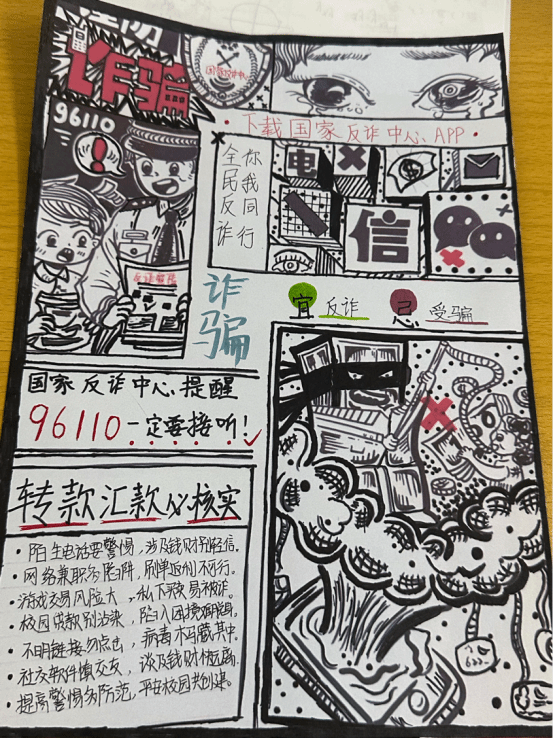 诈骗
96110
·下载国家反诈中心APP·
全民反诈
你我同行
电
信
诈骗
宜 反诈 忌 受骗
国家反诈中心提醒
96110一定要接听!
转款汇款必核实
·陌生电话要警惕,涉及钱财别轻信。
·网络兼职多陷阱,刷单返利不可行。
·游戏交易风险大,私下转账易被诈。
·校园贷款别沾染,陷入困境
·不明链接勿点击,病毒木马藏其中。
·社交软件慎交友,谈及钱财
·提高警惕多防范,平安校园共创建。